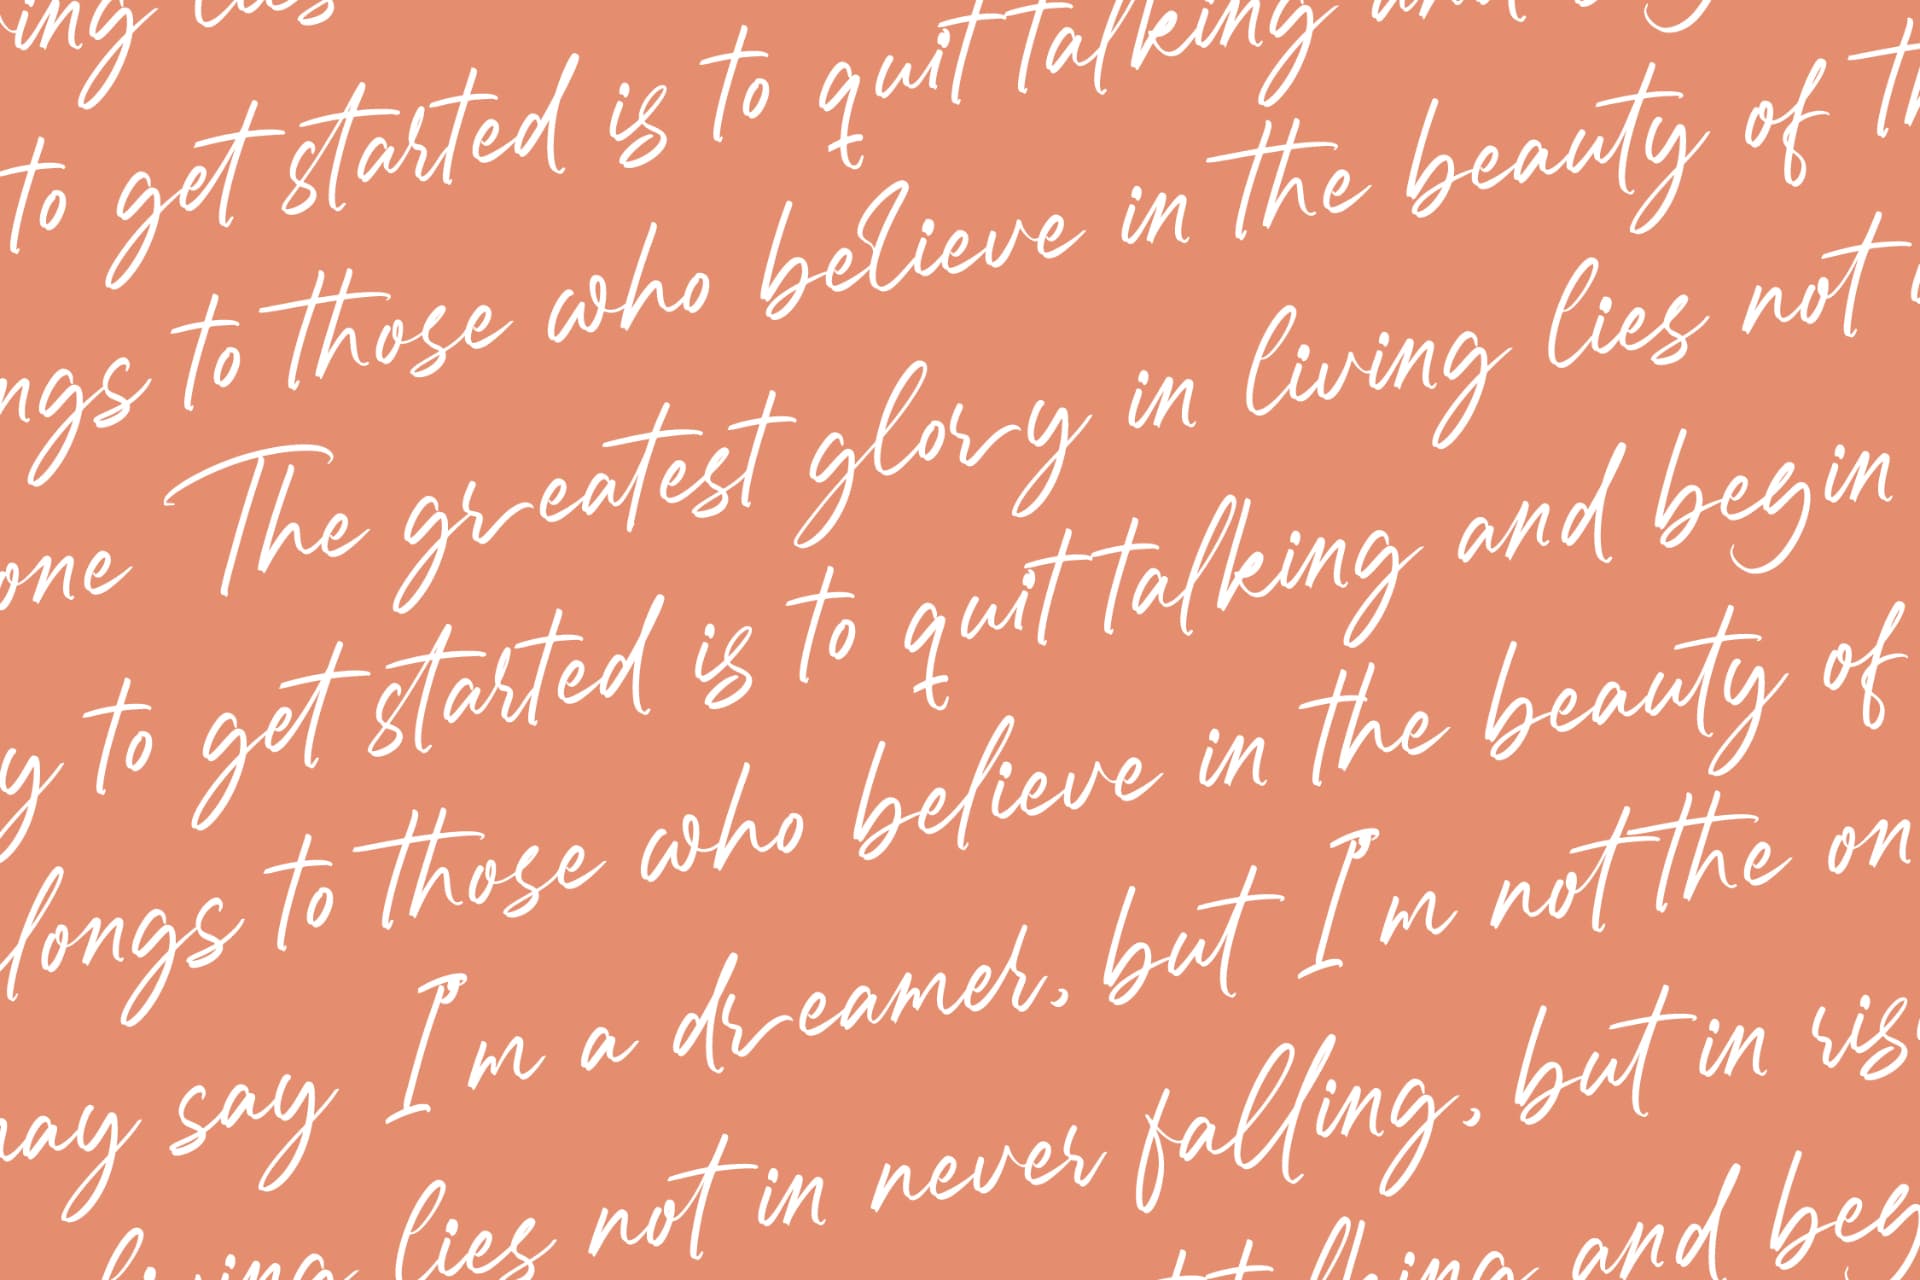 ing lies
to get started is to quit talking and
ngs to those who believe in the beauty of th
one The greatest glory in living lies not
y to get started is to quit talking and begin
longs to those who believe in the beauty of
may say I'm a dreamer, but I'm not the on
living lies not in never falling, but in ris
talking and beg